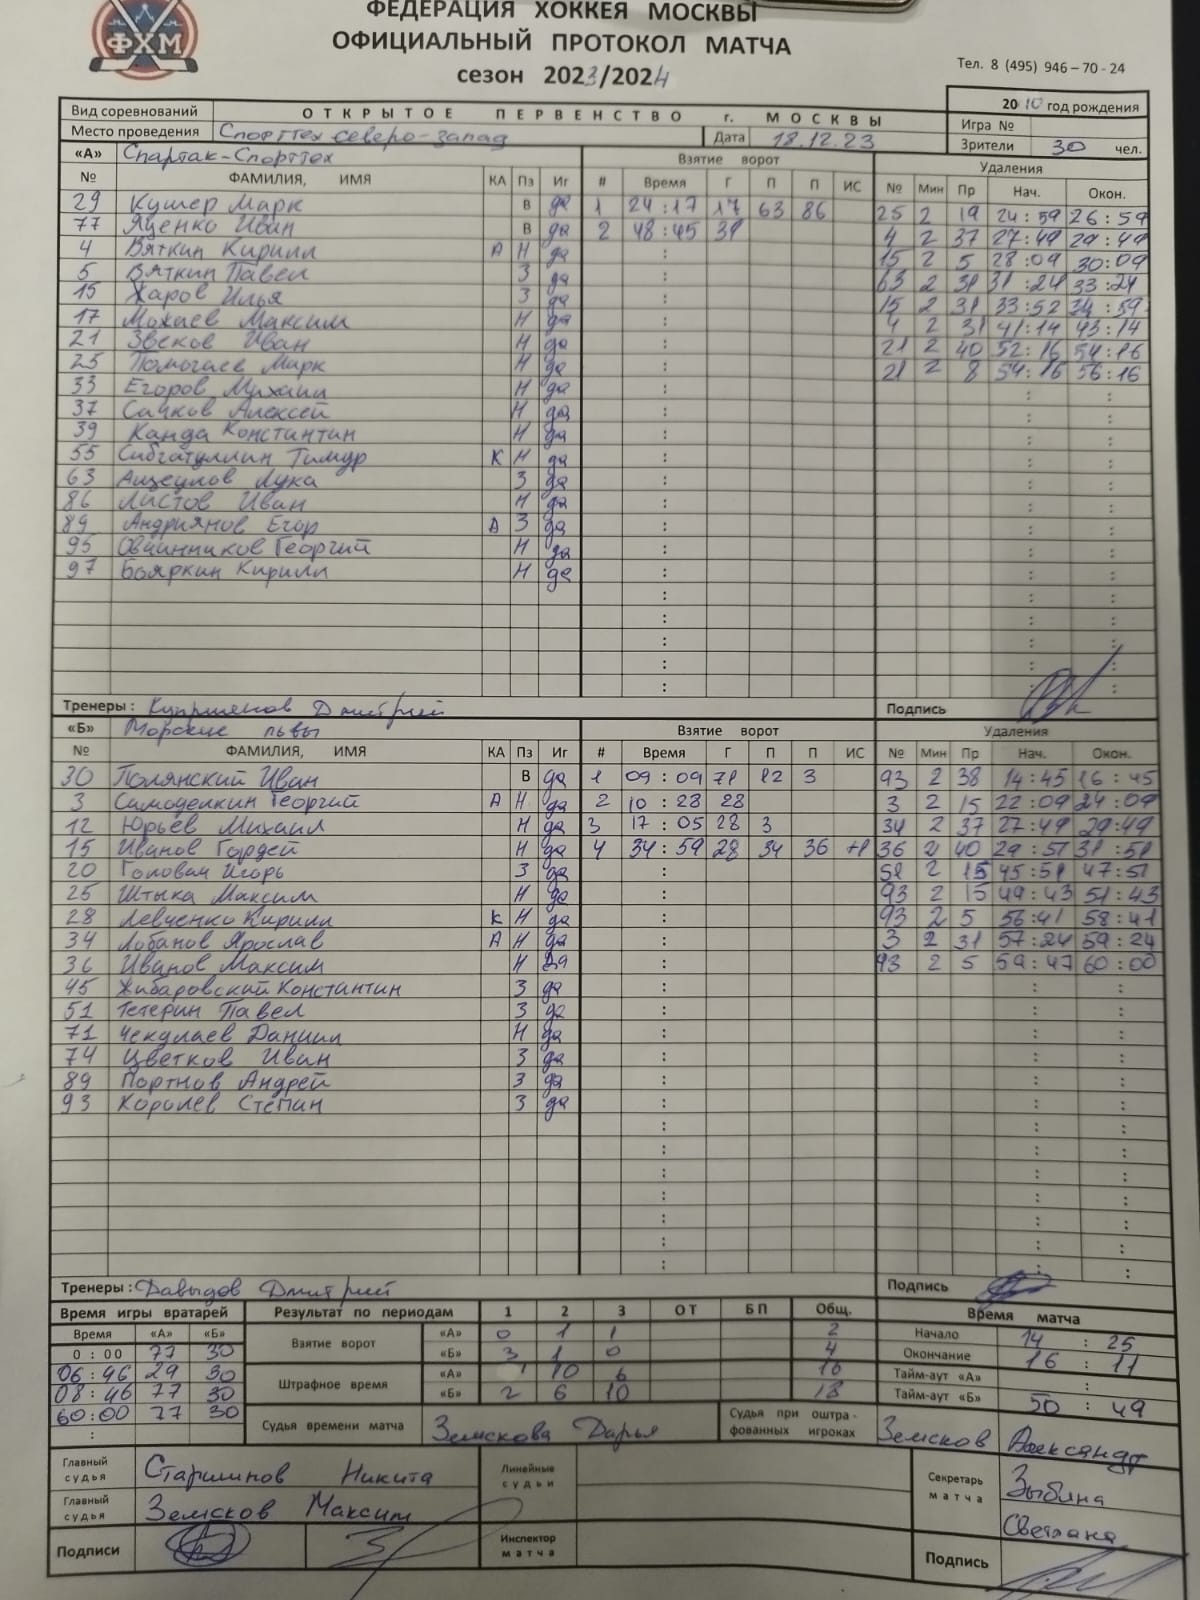 ФЕДЕРАЦИЯ ХОККЕЯ МОСКВЫ
ФХМ
ОФИЦИАЛЬНЫЙ ПРОТОКОЛ МАТЧА
сезон 2023/2024
Тел. 8 (495) 946-70-24
Вид соревнований ОТКРЫТОЕ ПЕРВЕНСТВО г. МОСКВЫ 2010 год рождения
Место проведения Спорттех северо-запад Дата 18.12.23 Игра №
Зрители 30 чел.
«А» Спартак-Спорттех Взятие ворот Удаления
№ ФАМИЛИЯ, ИМЯ КА Пз Иг # Время Г П П ИС № Мин Пр Нач. Окон.
29 Кушер Марк В да 1 24:17 17 63 86 25 2 19 24:59 26:59
77 Яценко Иван В да 2 48:45 39 4 2 37 27:49 29:49
4 Вяткин Кирилл А Н да : 15 2 5 28:09 30:09
5 Вяткин Павел З да : 63 2 31 31:24 33:24
15 Жаров Илья З да : 15 2 31 33:52 34:59
17 Мохаев Максим Н да : 4 2 31 41:14 43:14
21 Звеков Иван Н да : 21 2 40 52:16 54:16
25 Помогаев Марк Н да : 21 2 8 54:16 56:16
33 Егоров Михаил Н да : : :
37 Сачков Алексей Н да : : :
39 Канда Константин Н да : : :
55 Сибгатуллин Тимур К Н да : : :
63 Анцеулов Лука З да : : :
86 Листов Иван Н да : : :
89 Андриянов Егор А З да : : :
95 Овчинников Георгий Н да : : :
97 Бояркин Кирилл Н да : : :
Тренеры: Куприянов Дмитрий Подпись
«Б» Морские львы Взятие ворот Удаления
№ ФАМИЛИЯ, ИМЯ КА Пз Иг # Время Г П П ИС № Мин Пр Нач. Окон.
30 Полянский Иван В да 1 09:09 71 12 3 93 2 38 14:45 16:45
3 Самоделкин Георгий А Н да 2 10:28 28 3 2 15 22:09 24:09
12 Юрьев Михаил Н да 3 17:05 28 3 34 2 37 27:49 29:49
15 Иванов Гордей Н да 4 34:59 28 34 36 +1 36 2 40 29:51 31:51
20 Головач Игорь З да : 51 2 15 45:51 47:51
25 Штыка Максим Н да : 93 2 15 49:43 51:43
28 Левченко Кирилл К Н да : 93 2 5 56:41 58:41
34 Лобанов Ярослав А Н да : 3 2 31 57:24 59:24
36 Иванов Максим Н да : 93 2 5 59:47 60:00
45 Жибаровский Константин З да : : :
51 Тетерин Павел З да : : :
71 Чекулаев Даниил Н да : : :
74 Цветков Иван З да : : :
89 Портнов Андрей З да : : :
93 Королев Степан З да : : :
Тренеры: Давыдов Дмитрий Подпись
Время игры вратарей Результат по периодам 1 2 3 ОТ БП Общ. Время матча
Время «А» «Б» Взятие ворот «А» 0 1 1 2 Начало 14:25
0:00 77 30 «Б» 3 1 0 4 Окончание 16:11
06:46 29 30 Штрафное время «А» 10 6 16 Тайм-аут «А» :
08:46 77 30 «Б» 2 6 10 18 Тайм-аут «Б» 50:49
60:00 77 30 Судья времени матча Земскова Дарья Судья при оштрафованных игроках Земсков Александр
Главный судья Старшинов Никита Линейные судьи Секретарь матча Зыбина Светлана
Главный судья Земсков Максим
Подписи Инспектор матча Подпись